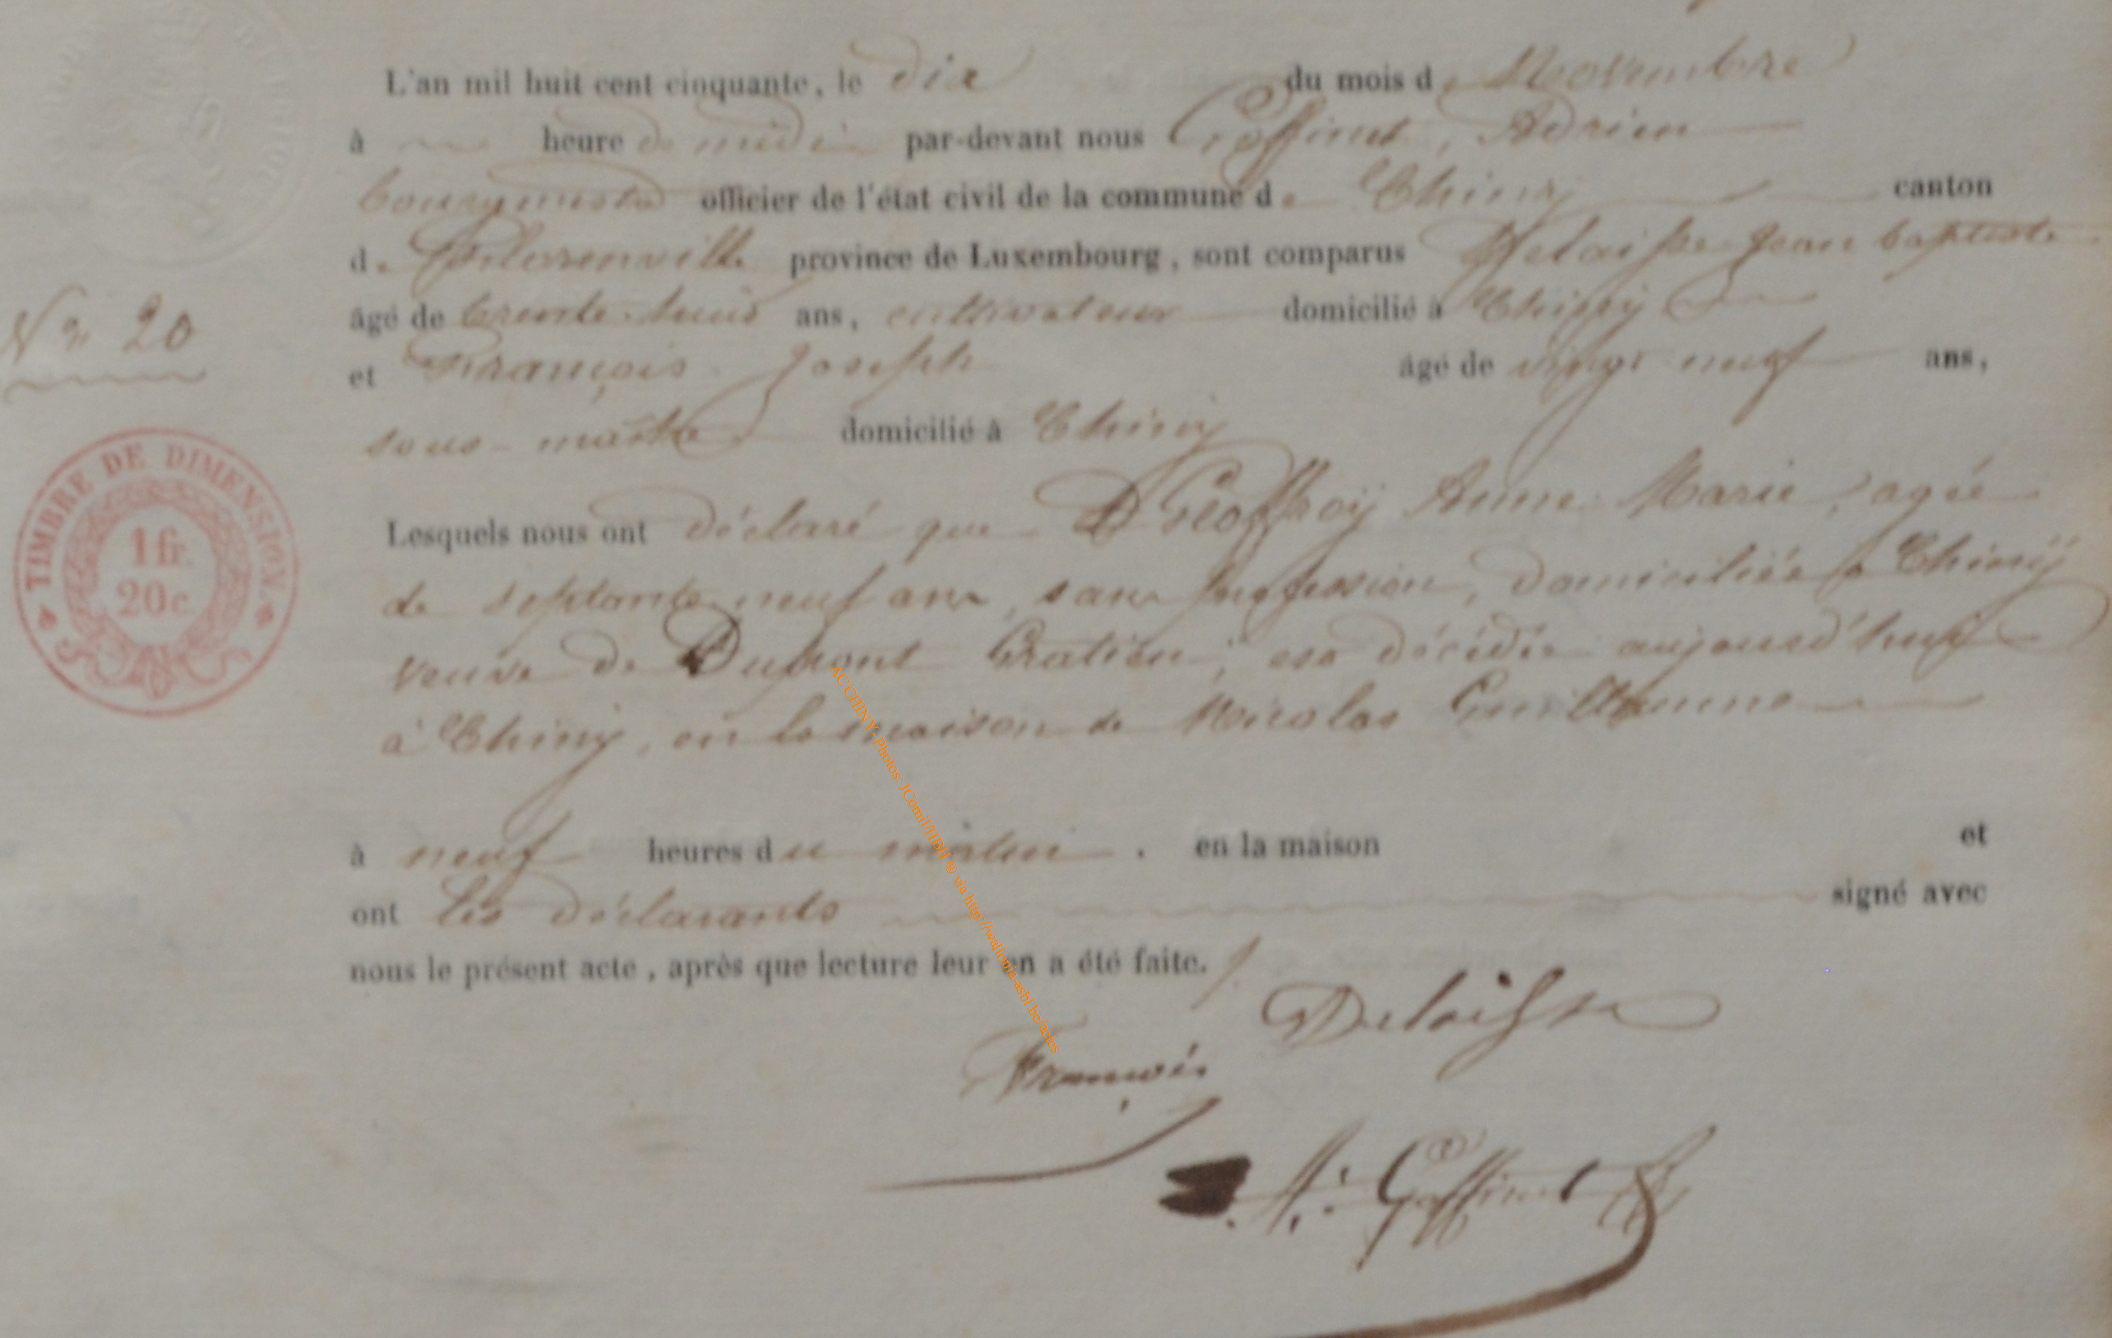 L'an mil huit cent cinquante, le dix du mois de Novembre
à heure de midi par-devant nous Goffinet, Adrien
bourgmestre officier de l'état civil de la commune de Chiny canton
de Florenville province de Luxembourg, sont comparus Delaisse Jean baptiste
âgé de trente-huit ans, cultivateur domicilié à Chiny
N° 20
et François Joseph âgé de vingt neuf ans,
sous-maître domicilié à Chiny
TIMBRE DE DIMENSION.
1 fr.
20c
Lesquels nous ont déclaré que Geoffroy Anne Marie, agée
de septante neuf ans, sans profession, domiciliée à Chiny
veuve de Dumont Gratien, est décédée aujourd'huy
à Chiny, en la maison de Nicolas Guillaume
à neuf heures du matin. en la maison et
ont les déclarants signé avec
nous le présent acte, après que lecture leur en a été faite.
Delaisse
François
A. Goffinet